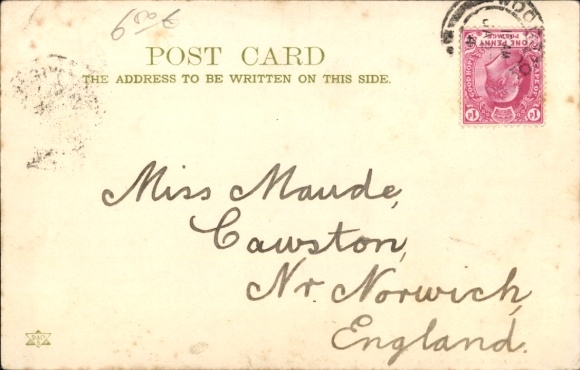 POST CARD
THE ADDRESS TO BE WRITTEN ON THIS SIDE.
ONE PENNY
POSTAGE
Miss Maude,
Cawston,
Nr. Norwich,
England.